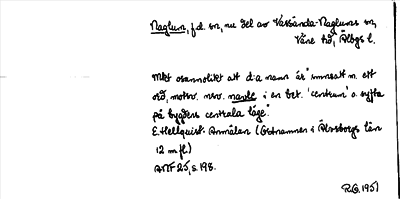 Naglum, f.d. sn, nu del av Vassända-Naglums sn,
Väne hd, Älvbgs l.
Mkt osannolikt att d:a namn är "inrest m. ett
ord, motsv. nsv. navle i en bet. 'centrum' o. syfta
på bygdens centrala läge".
E. Hellquist: Anmälan (Ortnamnen i Älvsborgs län
12 m.fl.)
ANF 25, s. 198.
R.O. 1951